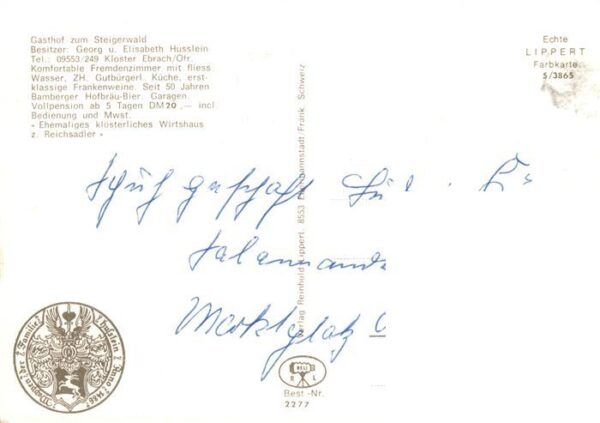 Gasthof zum Steigerwald
Besitzer: Georg u. Elisabeth Husslein
Tel.: 09553/249 Kloster Ebrach/Ofr.
Komfortable Fremdenzimmer mit fliess.
Wasser, ZH. Gutbürgerl. Küche, erst-
klassige Frankenweine. Seit 50 Jahren
Bamberger Hofbräu-Bier. Garagen.
Vollpension ab 5 Tagen DM 20,— incl.
Bedienung und Mwst.
« Ehemaliges klösterliches Wirtshaus
z. Reichsadler »
Echte
LIPPERT
Farbkarte
5/3865
Verlag Reinhold Lippert, 8553 Ebermannstadt/Fränk. Schweiz
Schuhgeschäft
Salamand
Marktplatz
Wappen der Familie Husslein Anno 1486
R L
Best.-Nr.
2277